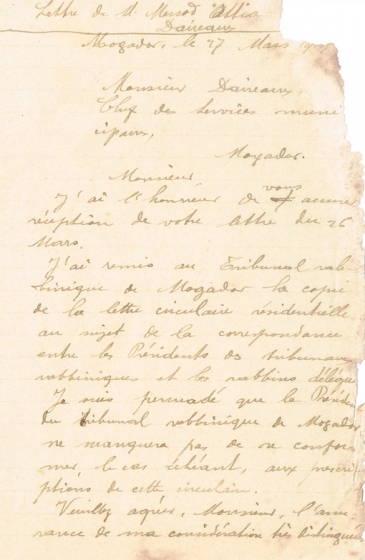 Lettre de M Messod Attia
Daireaux
Mogador, le 27 Mars
Monsieur Daireaux,
Chef des services muni
cipaux,
Mogador.
Monsieur
J'ai l'honneur de vous accuser
réception de votre lettre du 26
Mars.
J'ai remis au Tribunal rab
binique de Mogador la copie
de la lettre circulaire résidentielle
au sujet de la correspondance
entre les Présidents des tribunaux
rabbiniques et les rabbins délégués
Je suis persuadé que le Présiden
du tribunal rabbinique de Mogador
ne manquera pas de se confor
mer, le cas échéant, aux prescri
ptions de cette circulaire.
Veuillez agréer, Monsieur, l'assu
rance de ma considération très distinguée